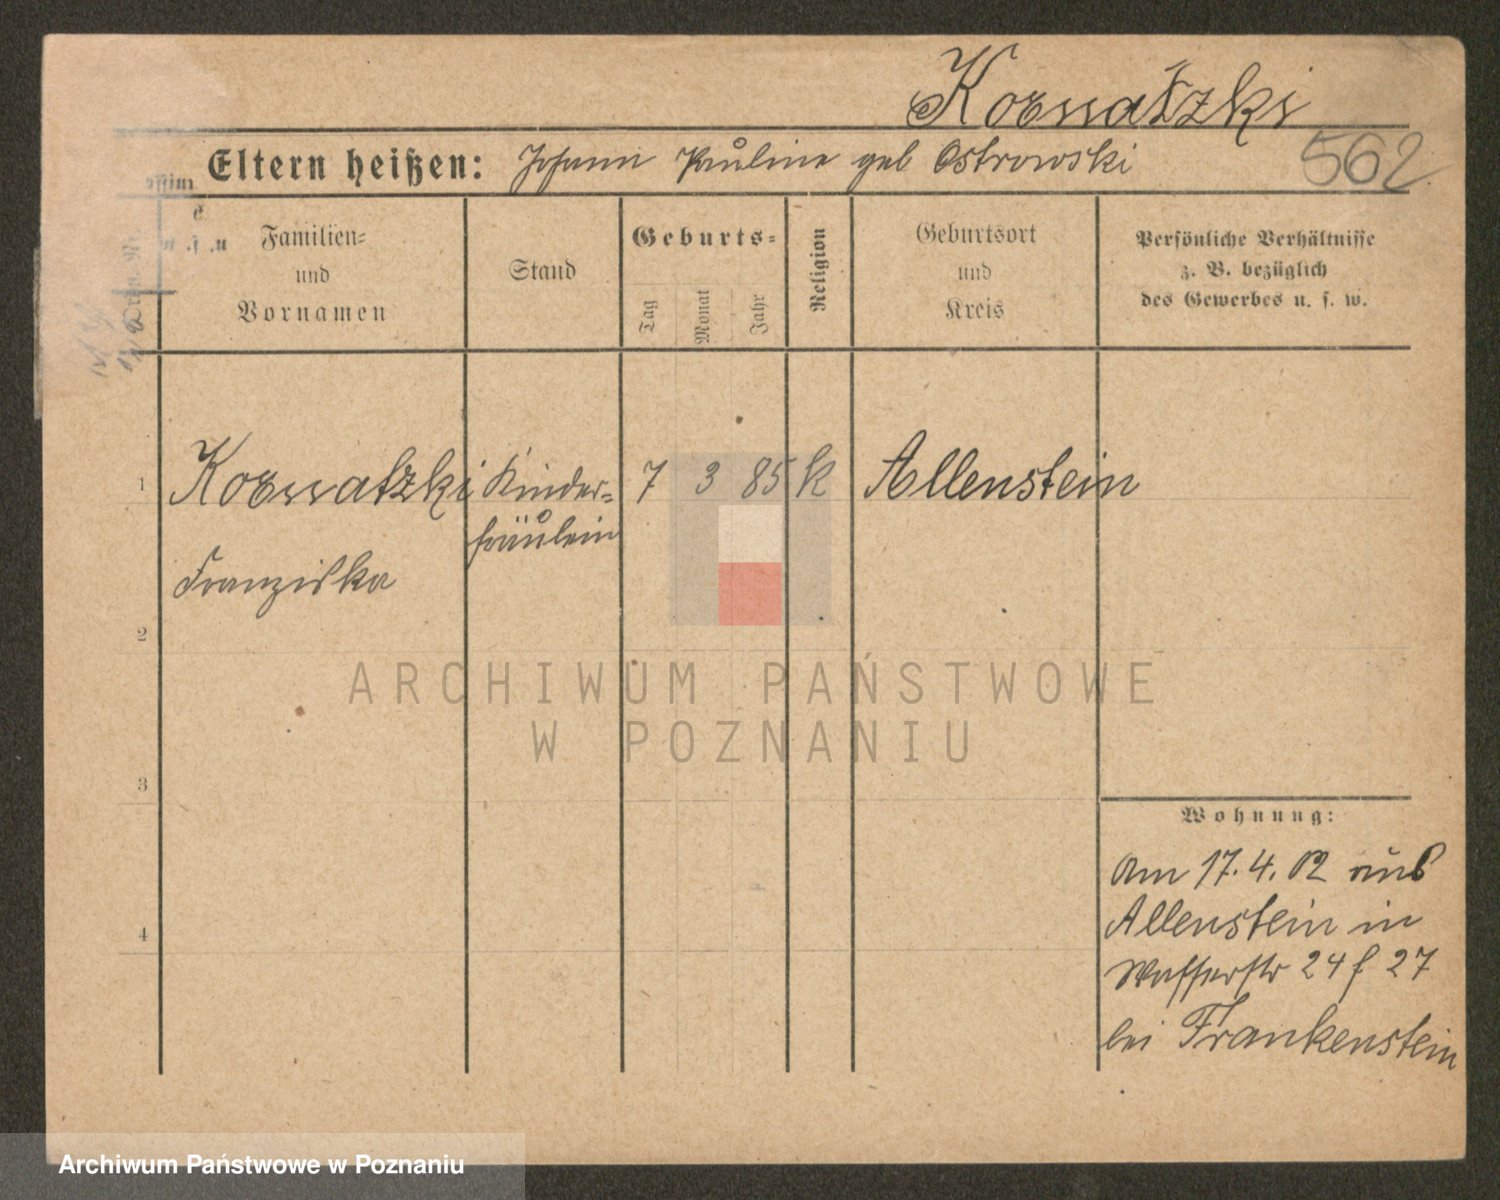 Kornatzki
Eltern heißen: Johann Pauline geb Ostrowski
562
Familien=
und
Vornamen
Stand
Geburts=
Tag
Monat
Jahr
Religion
Geburtsort
und
Kreis
Persönliche Verhältnisse
z. B. bezüglich
des Gewerbes u. s. w.
1
Kornatzki Kinder= 7 3 85 k Allenstein
fräulein
Franziska
2
ARCHIWUM PAŃSTWOWE
W POZNANIU
3
Wohnung:
Am 17.4.02 aus
Allenstein in
4
Wasserstr 24 f 27
bei Frankenstein
Archiwum Państwowe w Poznaniu